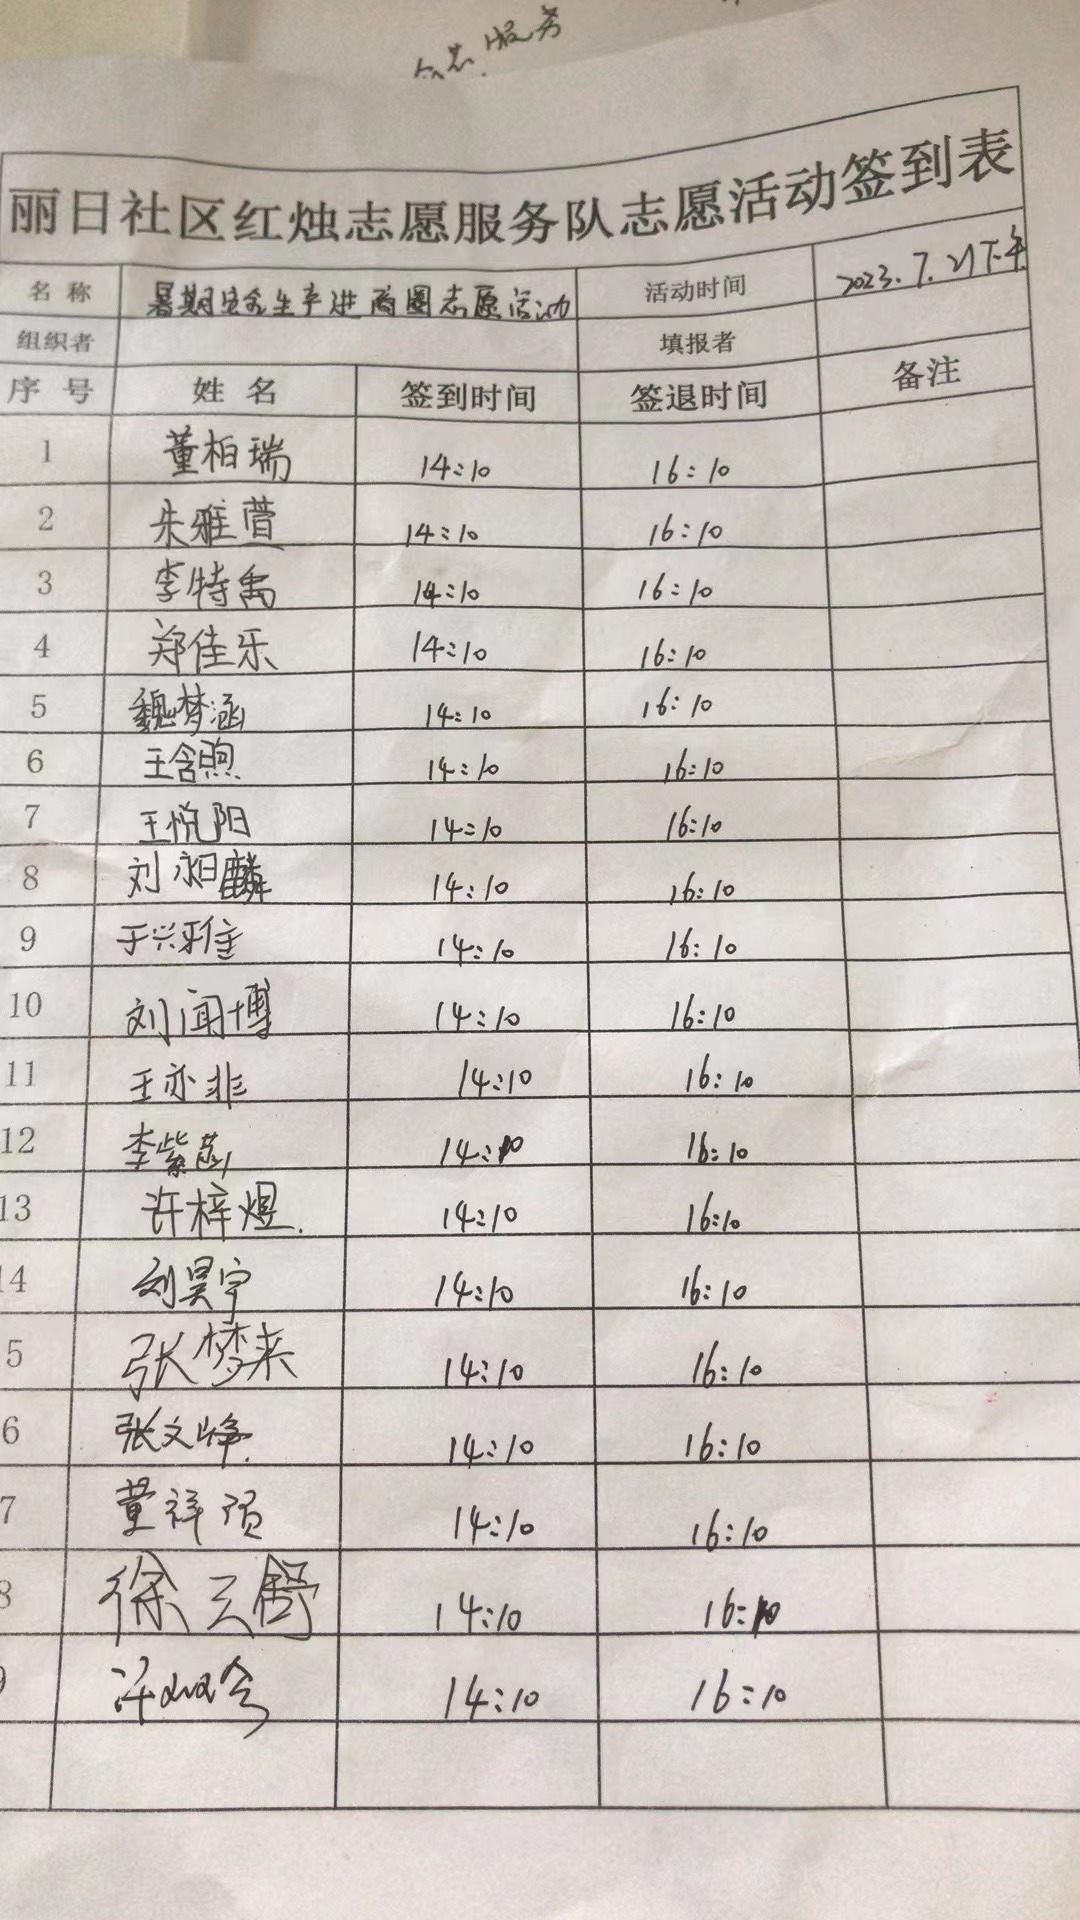 志 服务
丽日社区红烛志愿服务队志愿活动签到表
名 称 暑期安全生产进商圈志愿活动 活动时间 2023.7.21下午
组织者 填报者
序 号 姓 名 签到时间 签退时间 备注
1 董柏瑞 14:10 16:10
2 朱雅萱 14:10 16:10
3 李特禹 14:10 16:10
4 郑佳乐 14:10 16:10
5 魏梦涵 14:10 16:10
6 王含煦 14:10 16:10
7 王悦阳 14:10 16:10
8 刘永日麟 14:10 16:10
9 于兴雅 14:10 16:10
10 刘闻博 14:10 16:10
11 王亦非 14:10 16:10
12 李紫 14:10 16:10
13 许梓煜. 14:10 16:10
14 刘昊宇 14:10 16:10
5 张梦来 14:10 16:10
6 张文峥. 14:10 16:10
7 董祥顶 14:10 16:10
8 徐云舒 14:10 16:10
9 14:10 16:10